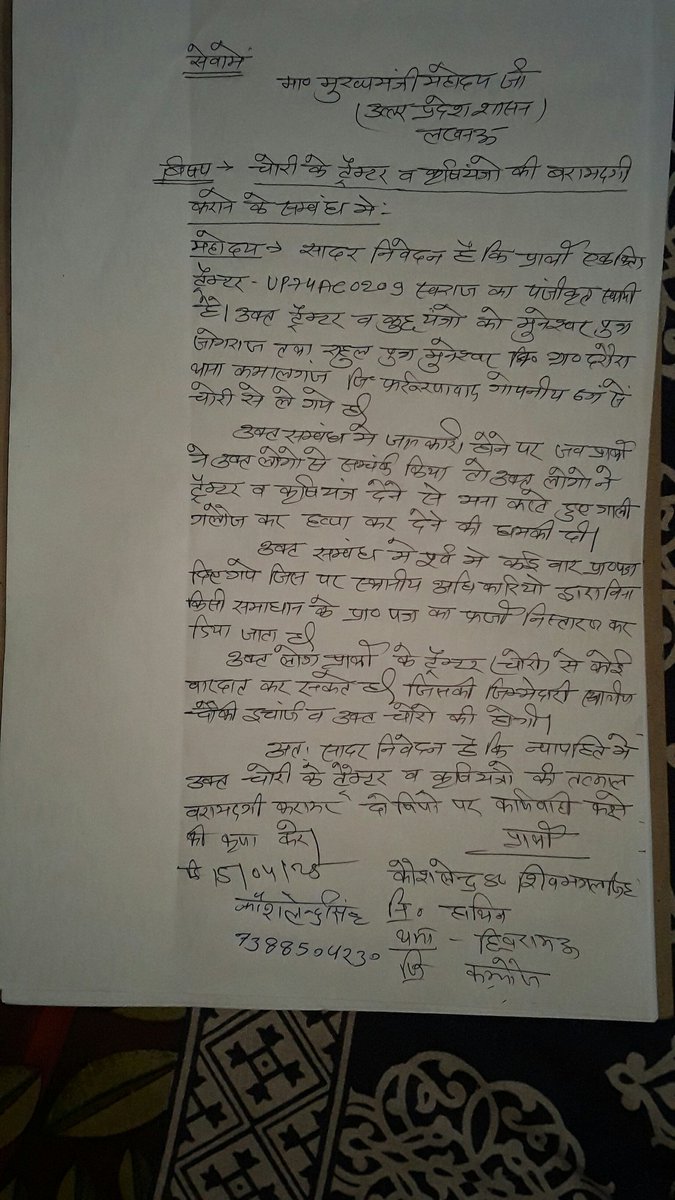 सेवामें
मा० मुख्यमंत्री महोदय जी
(उत्तर प्रदेश शासन)
लखनऊ
विषय → चोरी के ट्रैक्टर व कृषियंत्रो की बरामदगी
कराने के सम्बंध मे :-
महोदय → सादर निवेदन है कि प्रार्थी एक
ट्रैक्टर - UP74AC0209 स्वराज का पंजीकृत स्वामी
है। उक्त ट्रैक्टर व कुछ यंत्रो को मुनेश्वर पुत्र
जोगराज तथा राहुल पुत्र मुनेश्वर नि० ग्रा० दरौरा
थाना कमालगंज जि० फर्रुखाबाद गोपनीय ढंग से
चोरी से ले गये है।
उक्त सम्बंध मे जानकारी होने पर जब प्रार्थी
ने उक्त लोगो से सम्पर्क किया तो उक्त लोगो ने
ट्रैक्टर व कृषियंत्र देने से मना करते हुए गाली
गलौज कर हत्या कर देने की धमकी दी।
उक्त सम्बंध मे पूर्व मे कई बार प्रा० पत्र
दिए गये जिस पर स्थानीय अधिकारियो द्वारा बिना
किसी समाधान के प्रा० पत्र का फर्जी निस्तारण कर
दिया जाता है।
उक्त लोग प्रार्थी के ट्रैक्टर (चोरी) से कोई
वारदात कर सकते है। जिसकी जिम्मेदारी स्थानीय
चौकी इंचार्ज व उक्त चोरो की होगी।
अतः सादर निवेदन है कि न्यायहित मे
उक्त चोरी के ट्रैक्टर व कृषियंत्रो की तत्काल
बरामदगी कराकर दोषियो पर कार्यवाही करने
की कृपा करे।
प्रार्थी
15/04/28
कौशलेन्द्र S/o शिवमंगल सिंह
कौशलेन्द्र सिंह
नि०
7388504230
थाना - छिबरामऊ
जि० कन्नौज